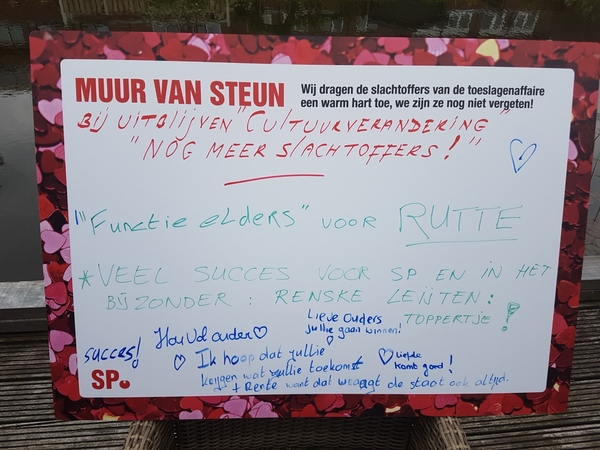 MUUR VAN STEUN
Wij dragen de slachtoffers van de toeslagenaffaire
een warm hart toe, we zijn ze nog niet vergeten!
BIJ UITBLIJVEN "CULTUURVERANDERING"
"NOG MEER SLACHTOFFERS!"
"Functie elders" voor RUTTE
*VEEL SUCCES VOOR SP EN IN HET
BIJZONDER: RENSKE LEIJTEN:
TOPPERTJE!
Lieve Ouders
jullie gaan winnen!
Hou Vol ouders
succes!
Ik hoop dat jullie
krijgen wat jullie toekomst
+ Rente want dat vraagt de staat ook altijd.
Liefde
komt goed!
SP.